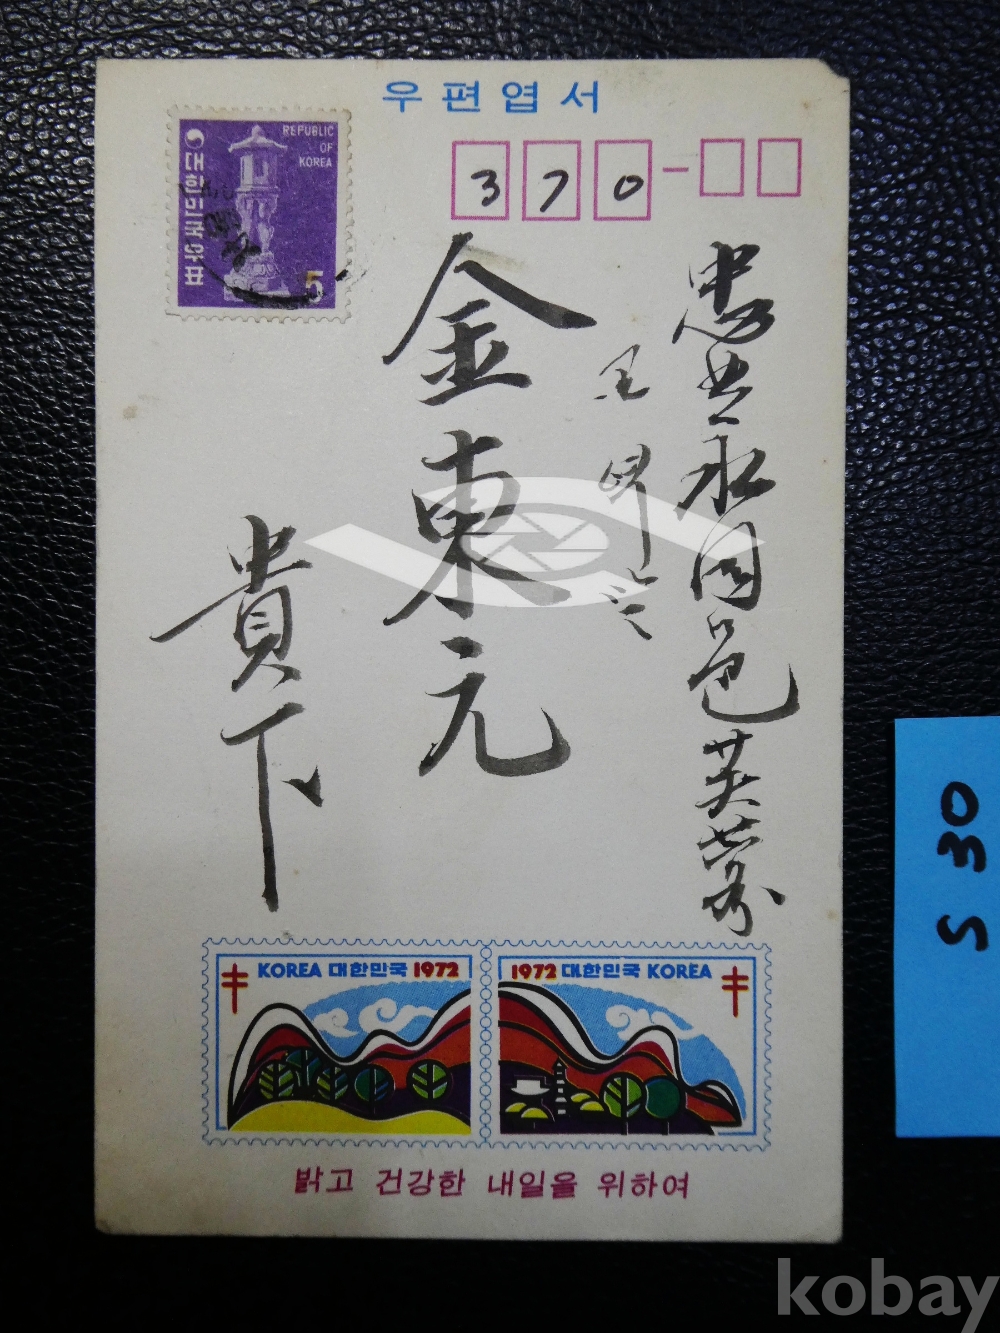 우편엽서
대한민국우표
REPUBLIC
OF
KOREA
5
370-
忠北永同邑芙蓉
金東元
貴下
KOREA 대한민국 1972
1972 대한민국 KOREA
밝고 건강한 내일을 위하여
S 30
kobay